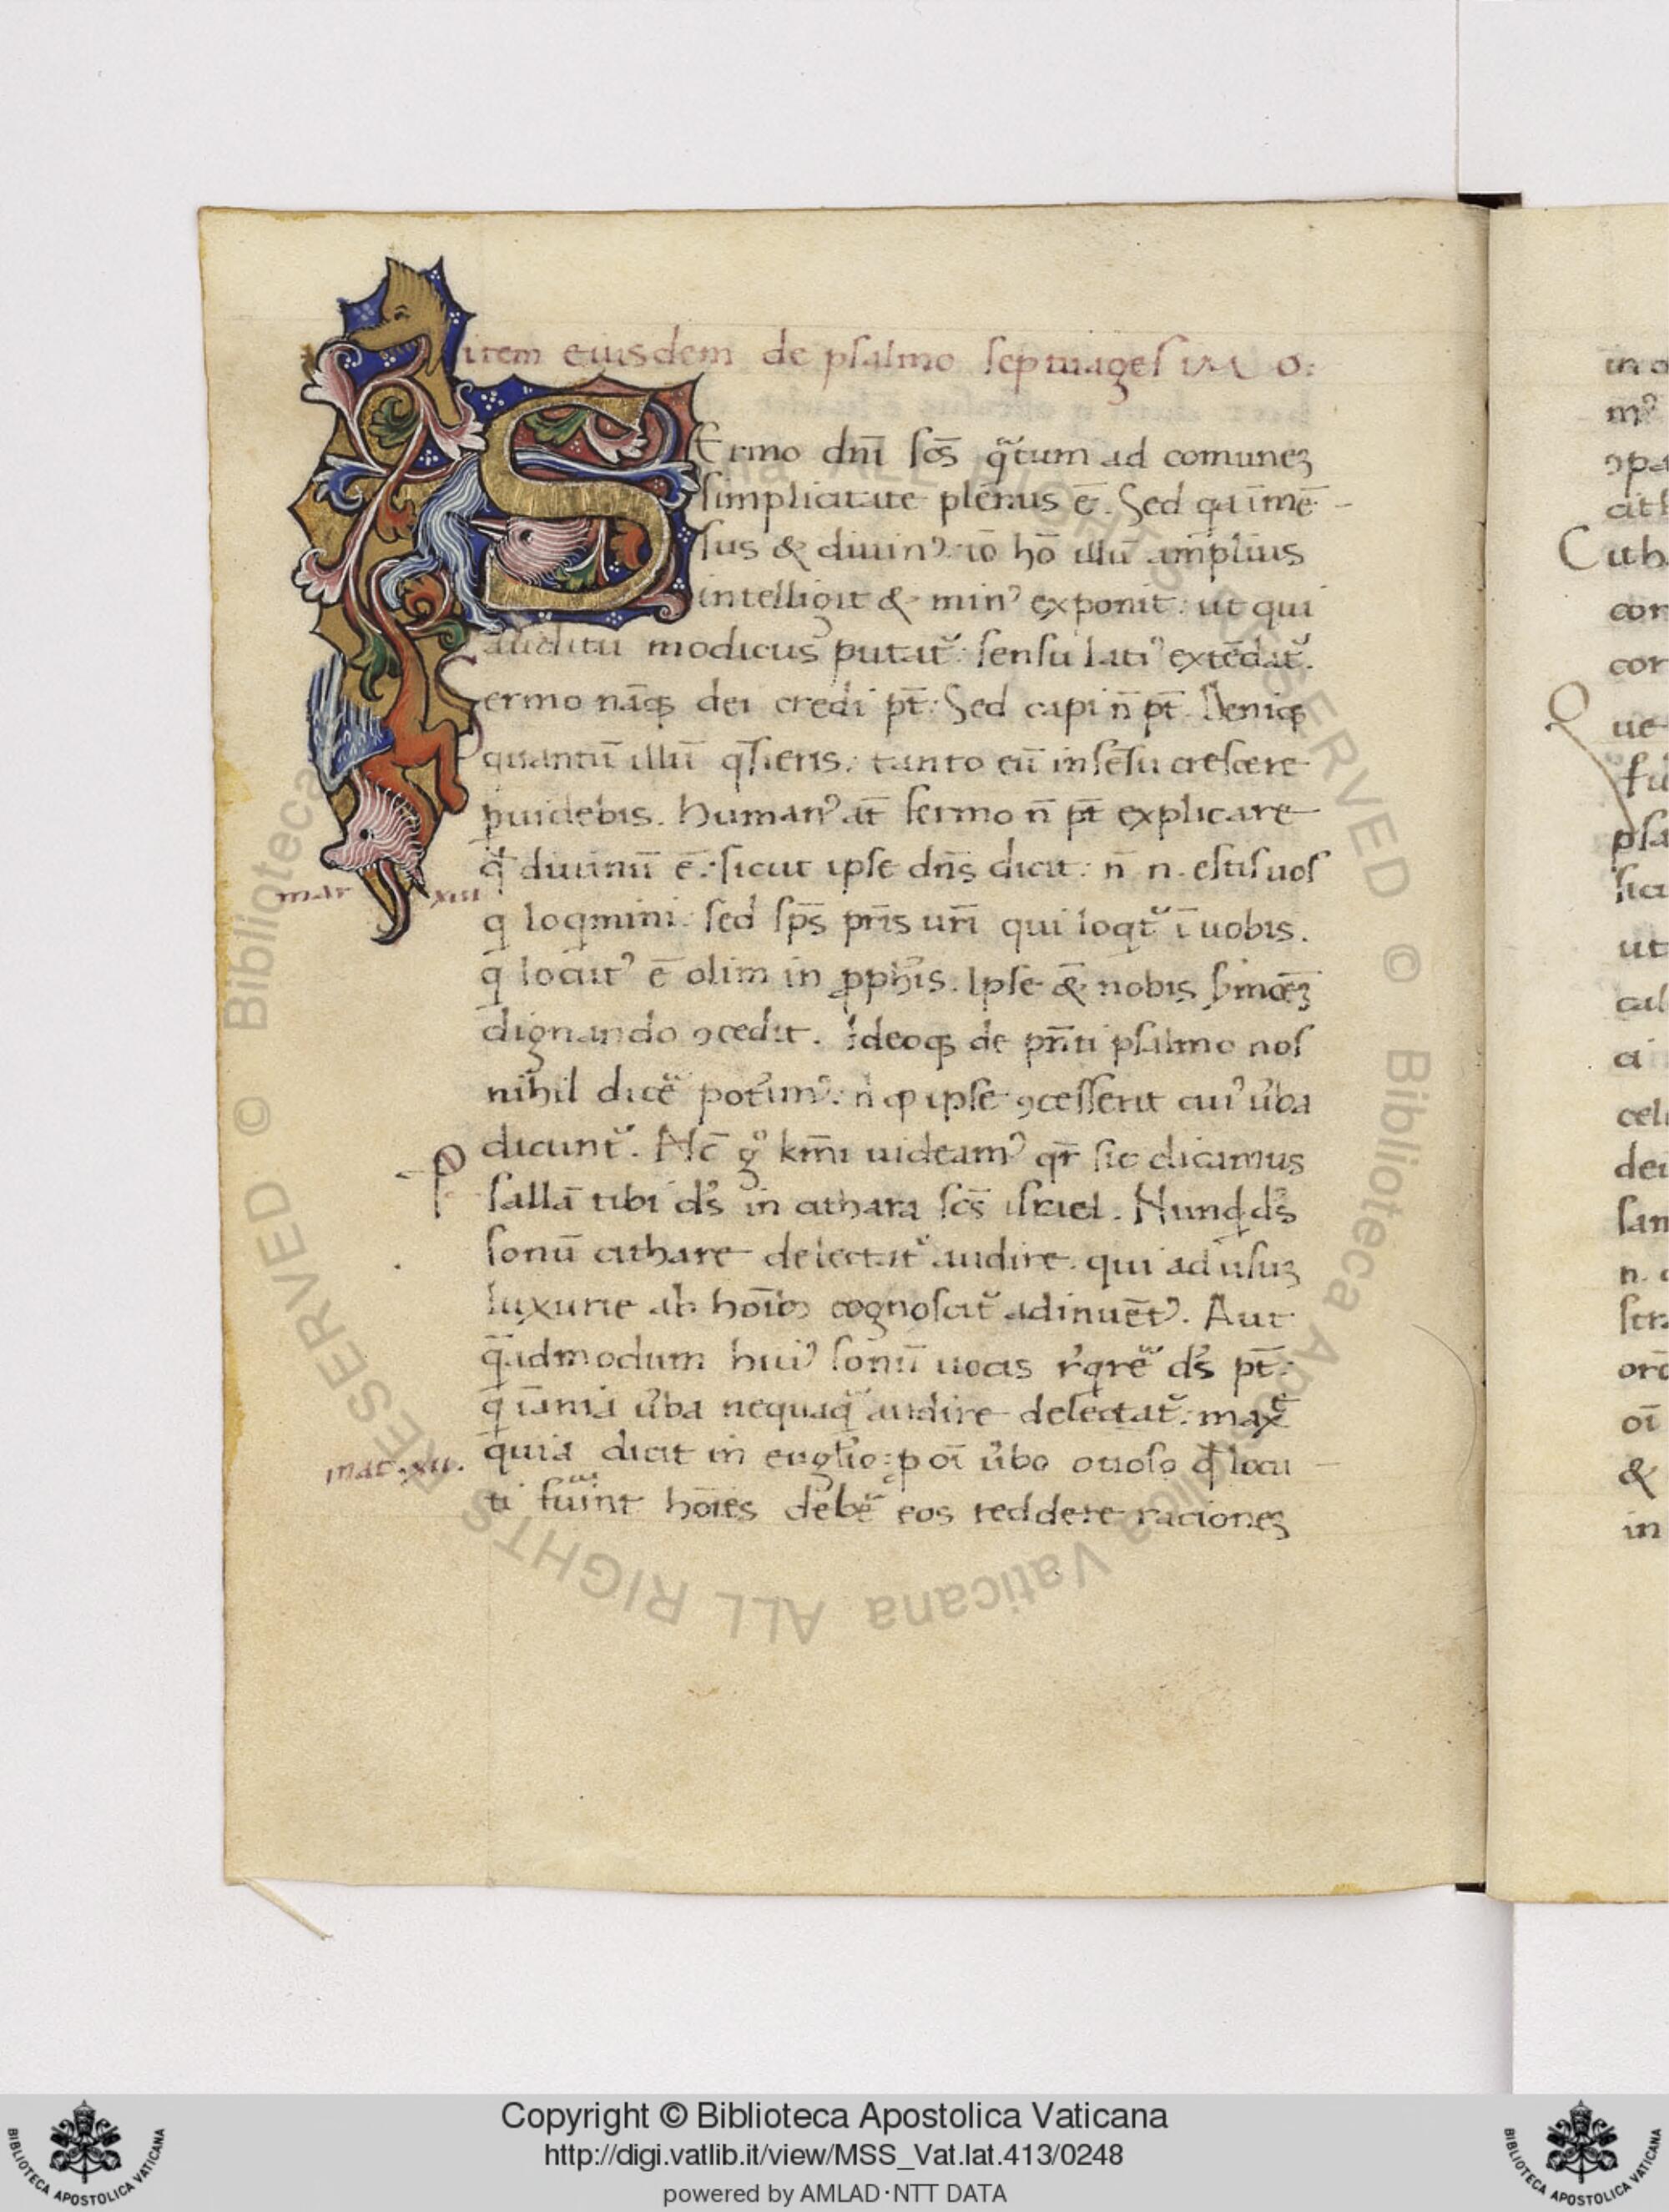 item eiusdem de psalmo septuagesiMo:
SErmo dnī scs̄ qͣtum ad comuneꝫ
simplicitate plenus ē. Sed qa īmē-
sus & diuinꝰ: iō hō illū amplius
intelligit & minꝰ exponit: ut qui
auditu modicus putat᷑: sensu lati᷑ extēdat᷑.
Sermo nāqꝫ dei credi pt̄: Sed capi n̄ pt̄. Deniqꝫ
quantū illū q̄sieris: tanto eū in sēsu crescere
puidebis. humanꝰ at̄ sermo n̄ pt̄ explicare
qđ diuinū ē: sicut ipse dn̄s dicit: n̄ n. estis uos
q loqmini: sed sp̄s pr̄is ur̄i qui loqt᷑ ī uobis.
mar xiii
q locutꝰ ē olim in ꝓph̄is. Ipse & nobis s̓mōeꝫ
dignando ꝯcedit. Ideoqꝫ de pn̄ti psalmo nos
nihil dicē potim̓ꝰ: n̄ qͩ ipse ꝯcesserit cuiꝰ u̓ba
dicunt᷑. Nc̄ gͦ km̄i uideamꝰ qr̄ sic dicamus
Psallā tibi ds̓ in cithara scs̄ israel. Nunqd ds̓
sonū cithare delectat᷑ audire. qui ad usuꝫ
luxurie ab hoīb; cognoscit᷑ adinuēt᷒. Aut
q̄admodum huiꝰ sonū uocis r̓qrē ds̓ pt̄:
q īania u̓ba nequaqͣ audire delectat᷑: maxͤ
quia dicit in euglio: p oī u̓bo otioso qđ locu-
mat. xii.
ti fuͥint hoīes deb̓ē eos reddere racioneꝫ
in
mꝰ
ꝯpa
cith
Cuth
con
cor
Que
psa
sicu
ut
cal
ci
celi
dei
san
n.
oī
&
in
© Biblioteca Apostolica Vaticana ALL RIGHTS RESERVED
Copyright © Biblioteca Apostolica Vaticana
http://digi.vatlib.it/view/MSS_Vat.lat.413/0248
powered by AMLAD·NTT DATA
BIBLIOTECA APOSTOLICA VATICANA
BIBLIOTECA APOSTOLICA VATICANA